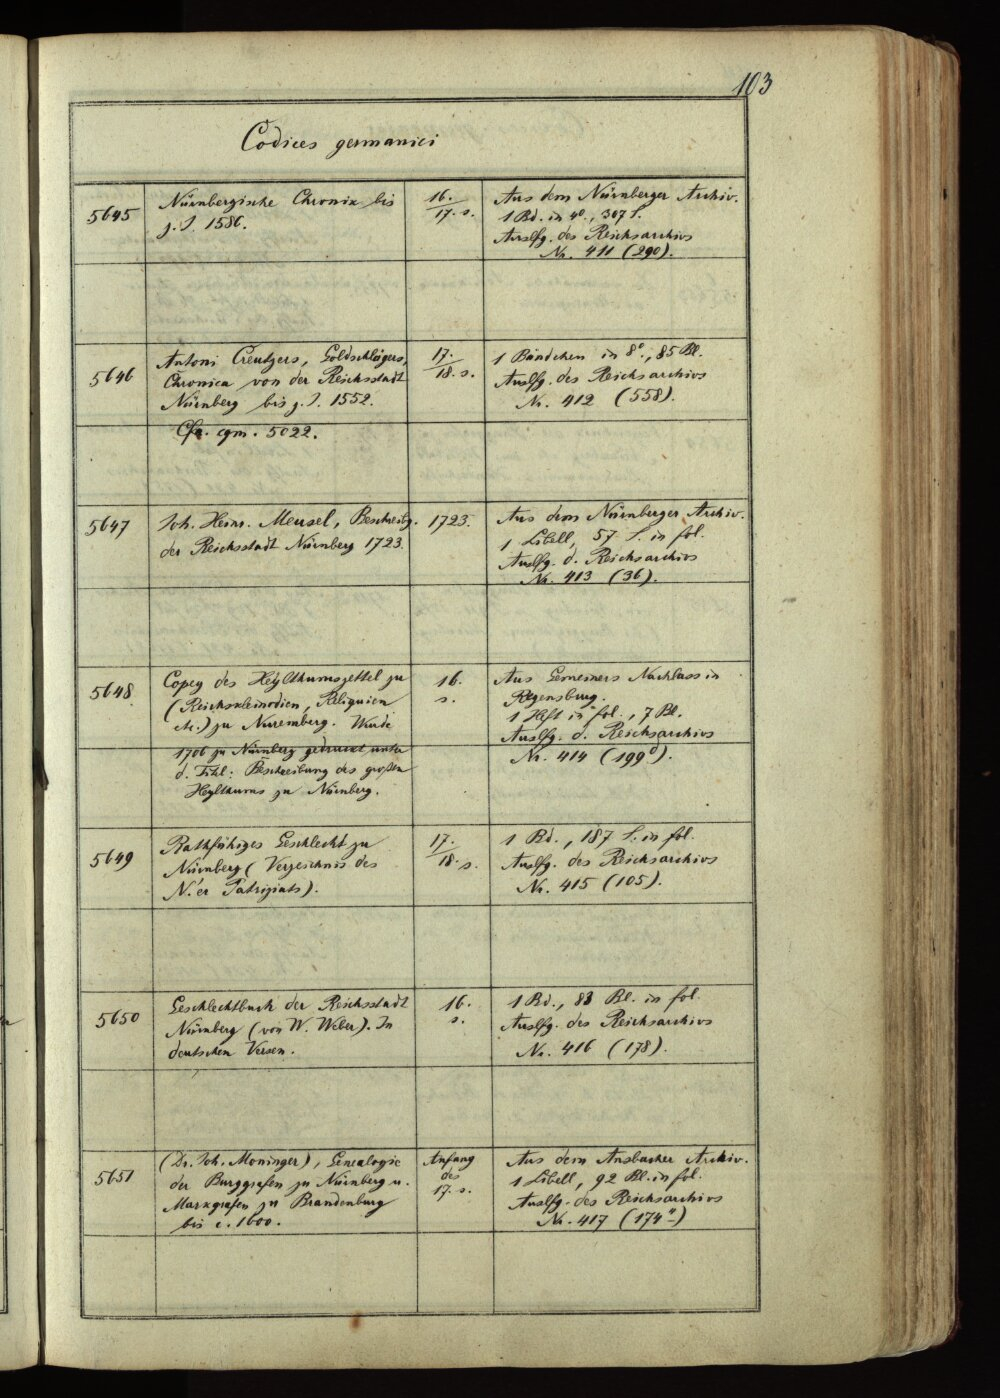 103
Codices germanici
5645
Nürnbergische Chronik bis
z. J. 1586.
16.
17. s.
Aus dem Nürnberger Archiv.
1 Bd. in 4°., 307 S.
Auslfg. des Reichsarchivs
Nr. 411 (290).
5646
Antoni Creutzers, Goldschlägers,
Chronica von der Reichsstadt
Nürnberg bis z. J. 1552.
Cfr. cgm. 5022.
17.
18. s.
1 Bändchen in 8°., 85 Bl.
Auslfg. des Reichsarchivs
Nr. 412 (558).
5647
Joh. Heinr. Meusel, Beschreibg.
der Reichsstadt Nürnberg 1723.
1723.
Aus dem Nürnberger Archiv.
1 Libell, 57 S. in fol.
Auslfg. d. Reichsarchivs
Nr. 413 (36).
5648
Copey des Heylthumszettel zu
(Reichskleinodien, Reliquien
etc.) zu Nuremberg. Wurde
1706 zu Nürnberg gedruckt unter
d. Titel: Beschreibung des großen
Heylthums zu Nürnberg.
16.
s.
Aus Gemeiners Nachlass in
Regensburg.
1 Heft in fol., 7 Bl.
Auslfg. d. Reichsarchivs
Nr. 414 (199°).
5649
Rathfähiges Geschlecht zu
Nürnberg (Verzeichnis des
N.'er Patriziats).
17.
18. s.
1 Bd., 187 S. in fol.
Auslfg. des Reichsarchivs
Nr. 415 (105).
5650
Geschlechtbuch der Reichsstadt
Nürnberg (von W. Weber). In
deutschen Versen.
16.
s.
1 Bd., 88 Bl. in fol.
Auslfg. des Reichsarchivs
Nr. 416 (178).
5651
(Dr. Joh. Moninger), Genealogie
der Burggrafen zu Nürnberg u.
Markgrafen zu Brandenburg
bis c. 1600.
Anfang
des
17. s.
Aus dem Ansbacher Archiv.
1 Libell, 92 Bl. in fol.
Auslfg. des Reichsarchivs
Nr. 417 (174")